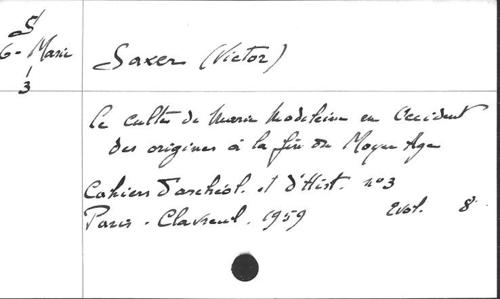 S
G - Marie
3
Saxer (Victor)
Le culte de Marie Madeleine en Occident
des origines à la fin du Moyen Age
Cahiers d'archéol. et d'Hist. n° 3
Paris - Clavreuil. 1959 2 vol. 8°